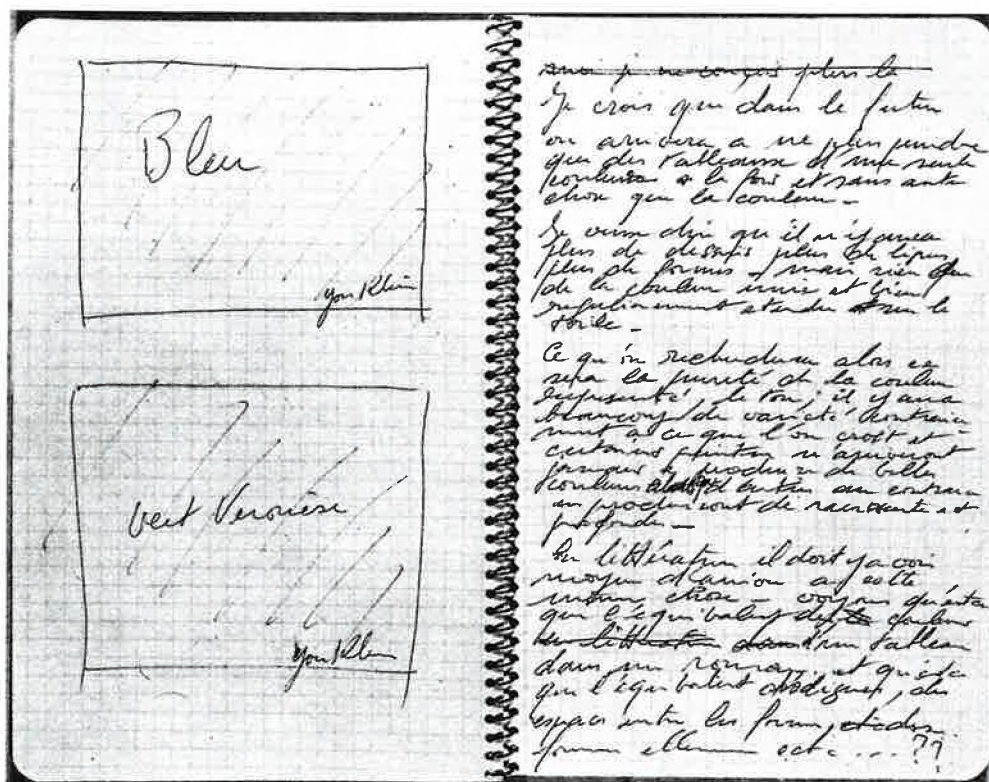 Bleu
Yves Klein
vert Véronèse
Yves Klein
moi je ne conçois plus la
Je crois que dans le futur
on arrivera a ne plus peindre
que des tableaux d'une seule
couleur a la fois et sans autre
chose que la couleur -
Je veux dire qu'il n'y aura
plus de dessins plus de lignes
plus de formes - mais rien que
de la couleur unie et bien
régulièrement etendue sur la
toile -
Ce qu'on recherchera alors ce
sera la pureté de la couleur
représenté, le ton, il y aura
beaucoup de variété contraire-
ment a ce que l'on croit et
certains peintres n'arriveront
jamais à produire de belles
couleurs d'autres au contraire
en produiront de ravissante et
profonde -
En littérature il doit y avoir
moyen d'arriver a cette
même chose - voyons qu'est ce
que l'équivalent des couleurs
en littérature dans d'un tableau
dans un roman et qu'est ce
que l'équivalent des lignes, des
espaces entre les formes, et des
formes elles mêmes ect - ... ??